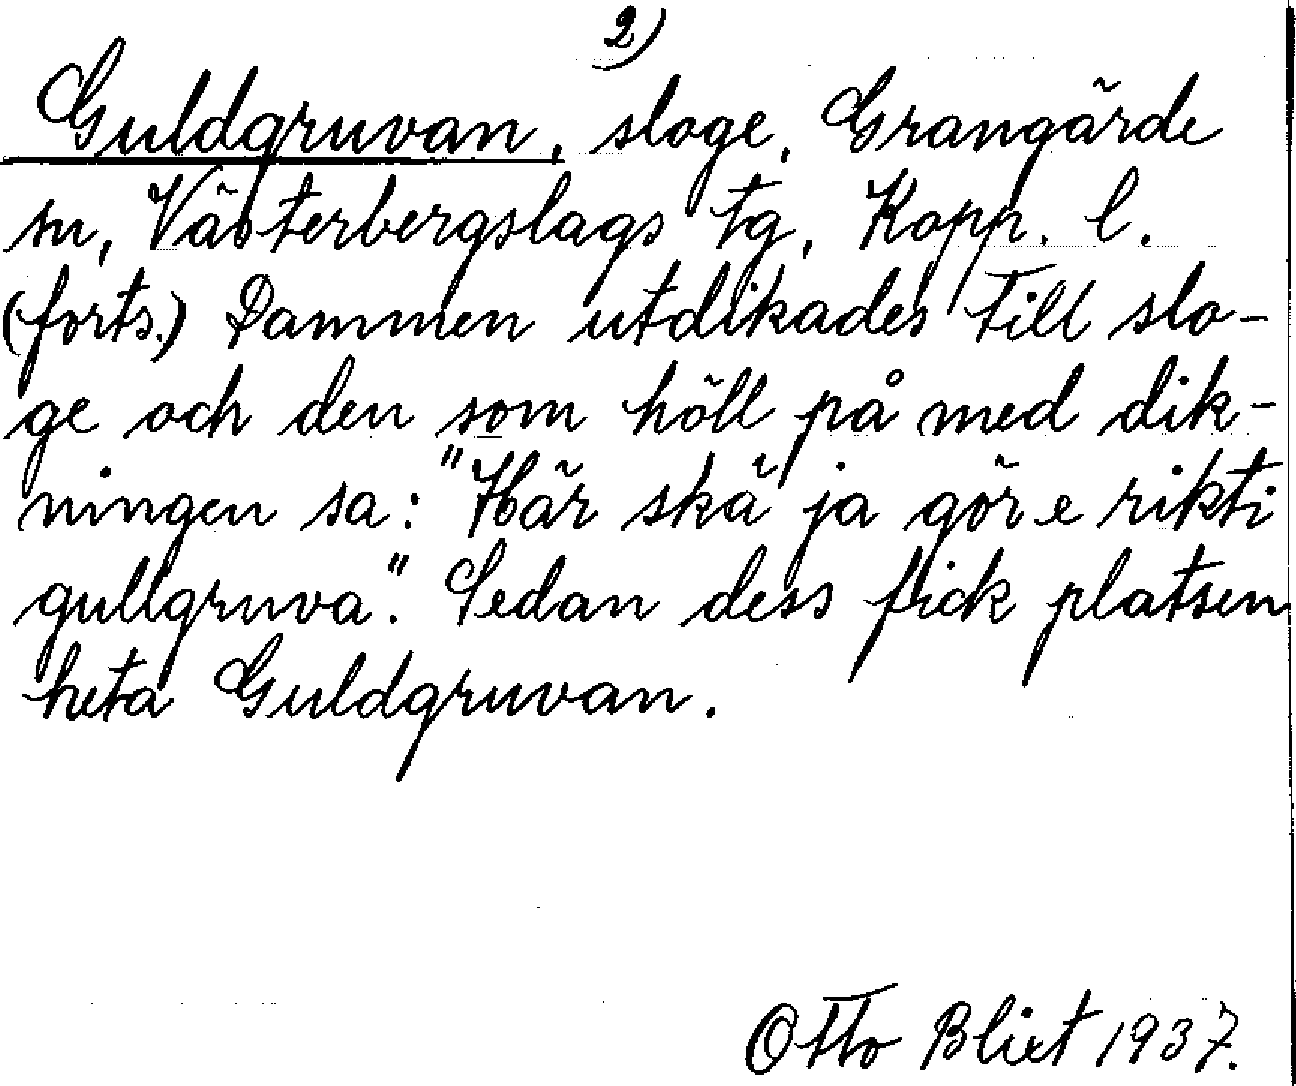 2)
Guldgruvan, sloge, Grangärde
sn, Västerbergslags tg, Kopp. l.
(forts.) Dammen utdikades till slo-
ge och den som höll på med dik-
ningen sa: "Här skä ja gör e rikti
gullgruva". Sedan dess fick platsen
heta Guldgruvan.
Otto Blixt 1937.